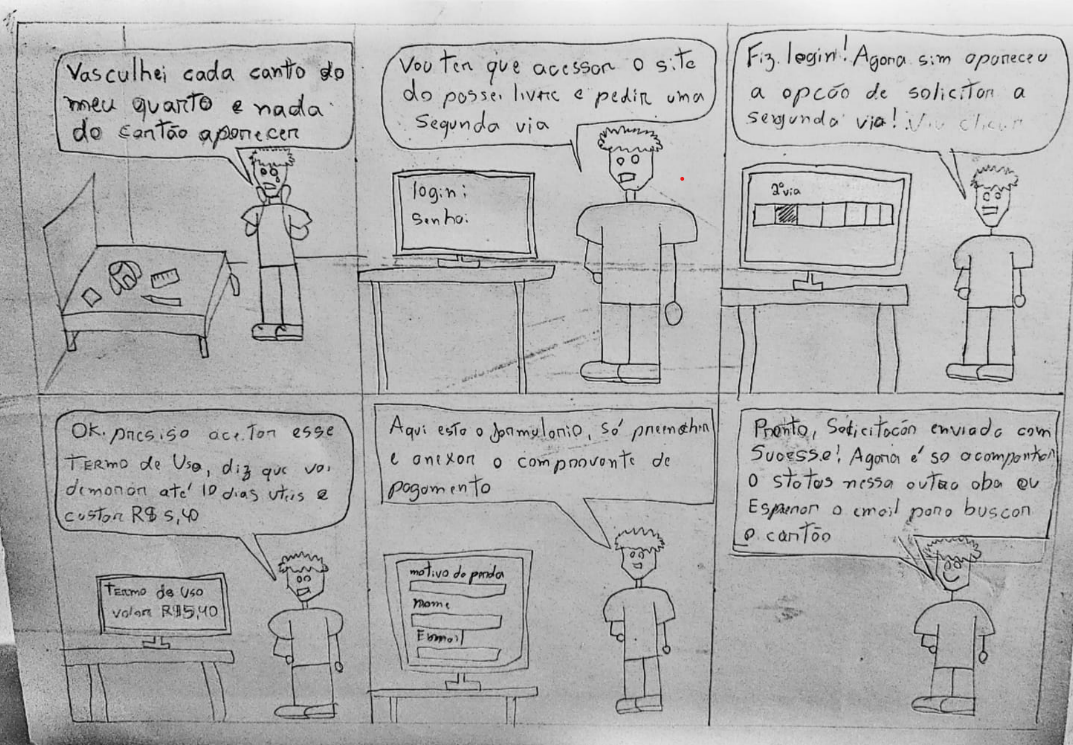 Vasculhei cada canto do
meu quarto e nada
do cartão aparecer
Vou ter que acessar o site
do passe livre e pedir uma
Segunda via
login:
Senha:
Fiz login! Agora sim apareceu
a opcão de solicitar a
sergunda via! Vou clicar
2º via
OK. presiso aceitar esse
TERMO de Uso, diz que vai
demorar até 10 dias uteis e
custar R$ 5,40
TERMO de Uso
valor R$5,40
Aqui esta o formulario, só preencher
e anexar o comprovante de
pagamento
motivo da perda
Nome
Email
Pronto, Solicitacão enviada com
Sucesso! Agora é só acompanhar
o status nessa outra aba ou
Esperar o email para buscar
o cartão